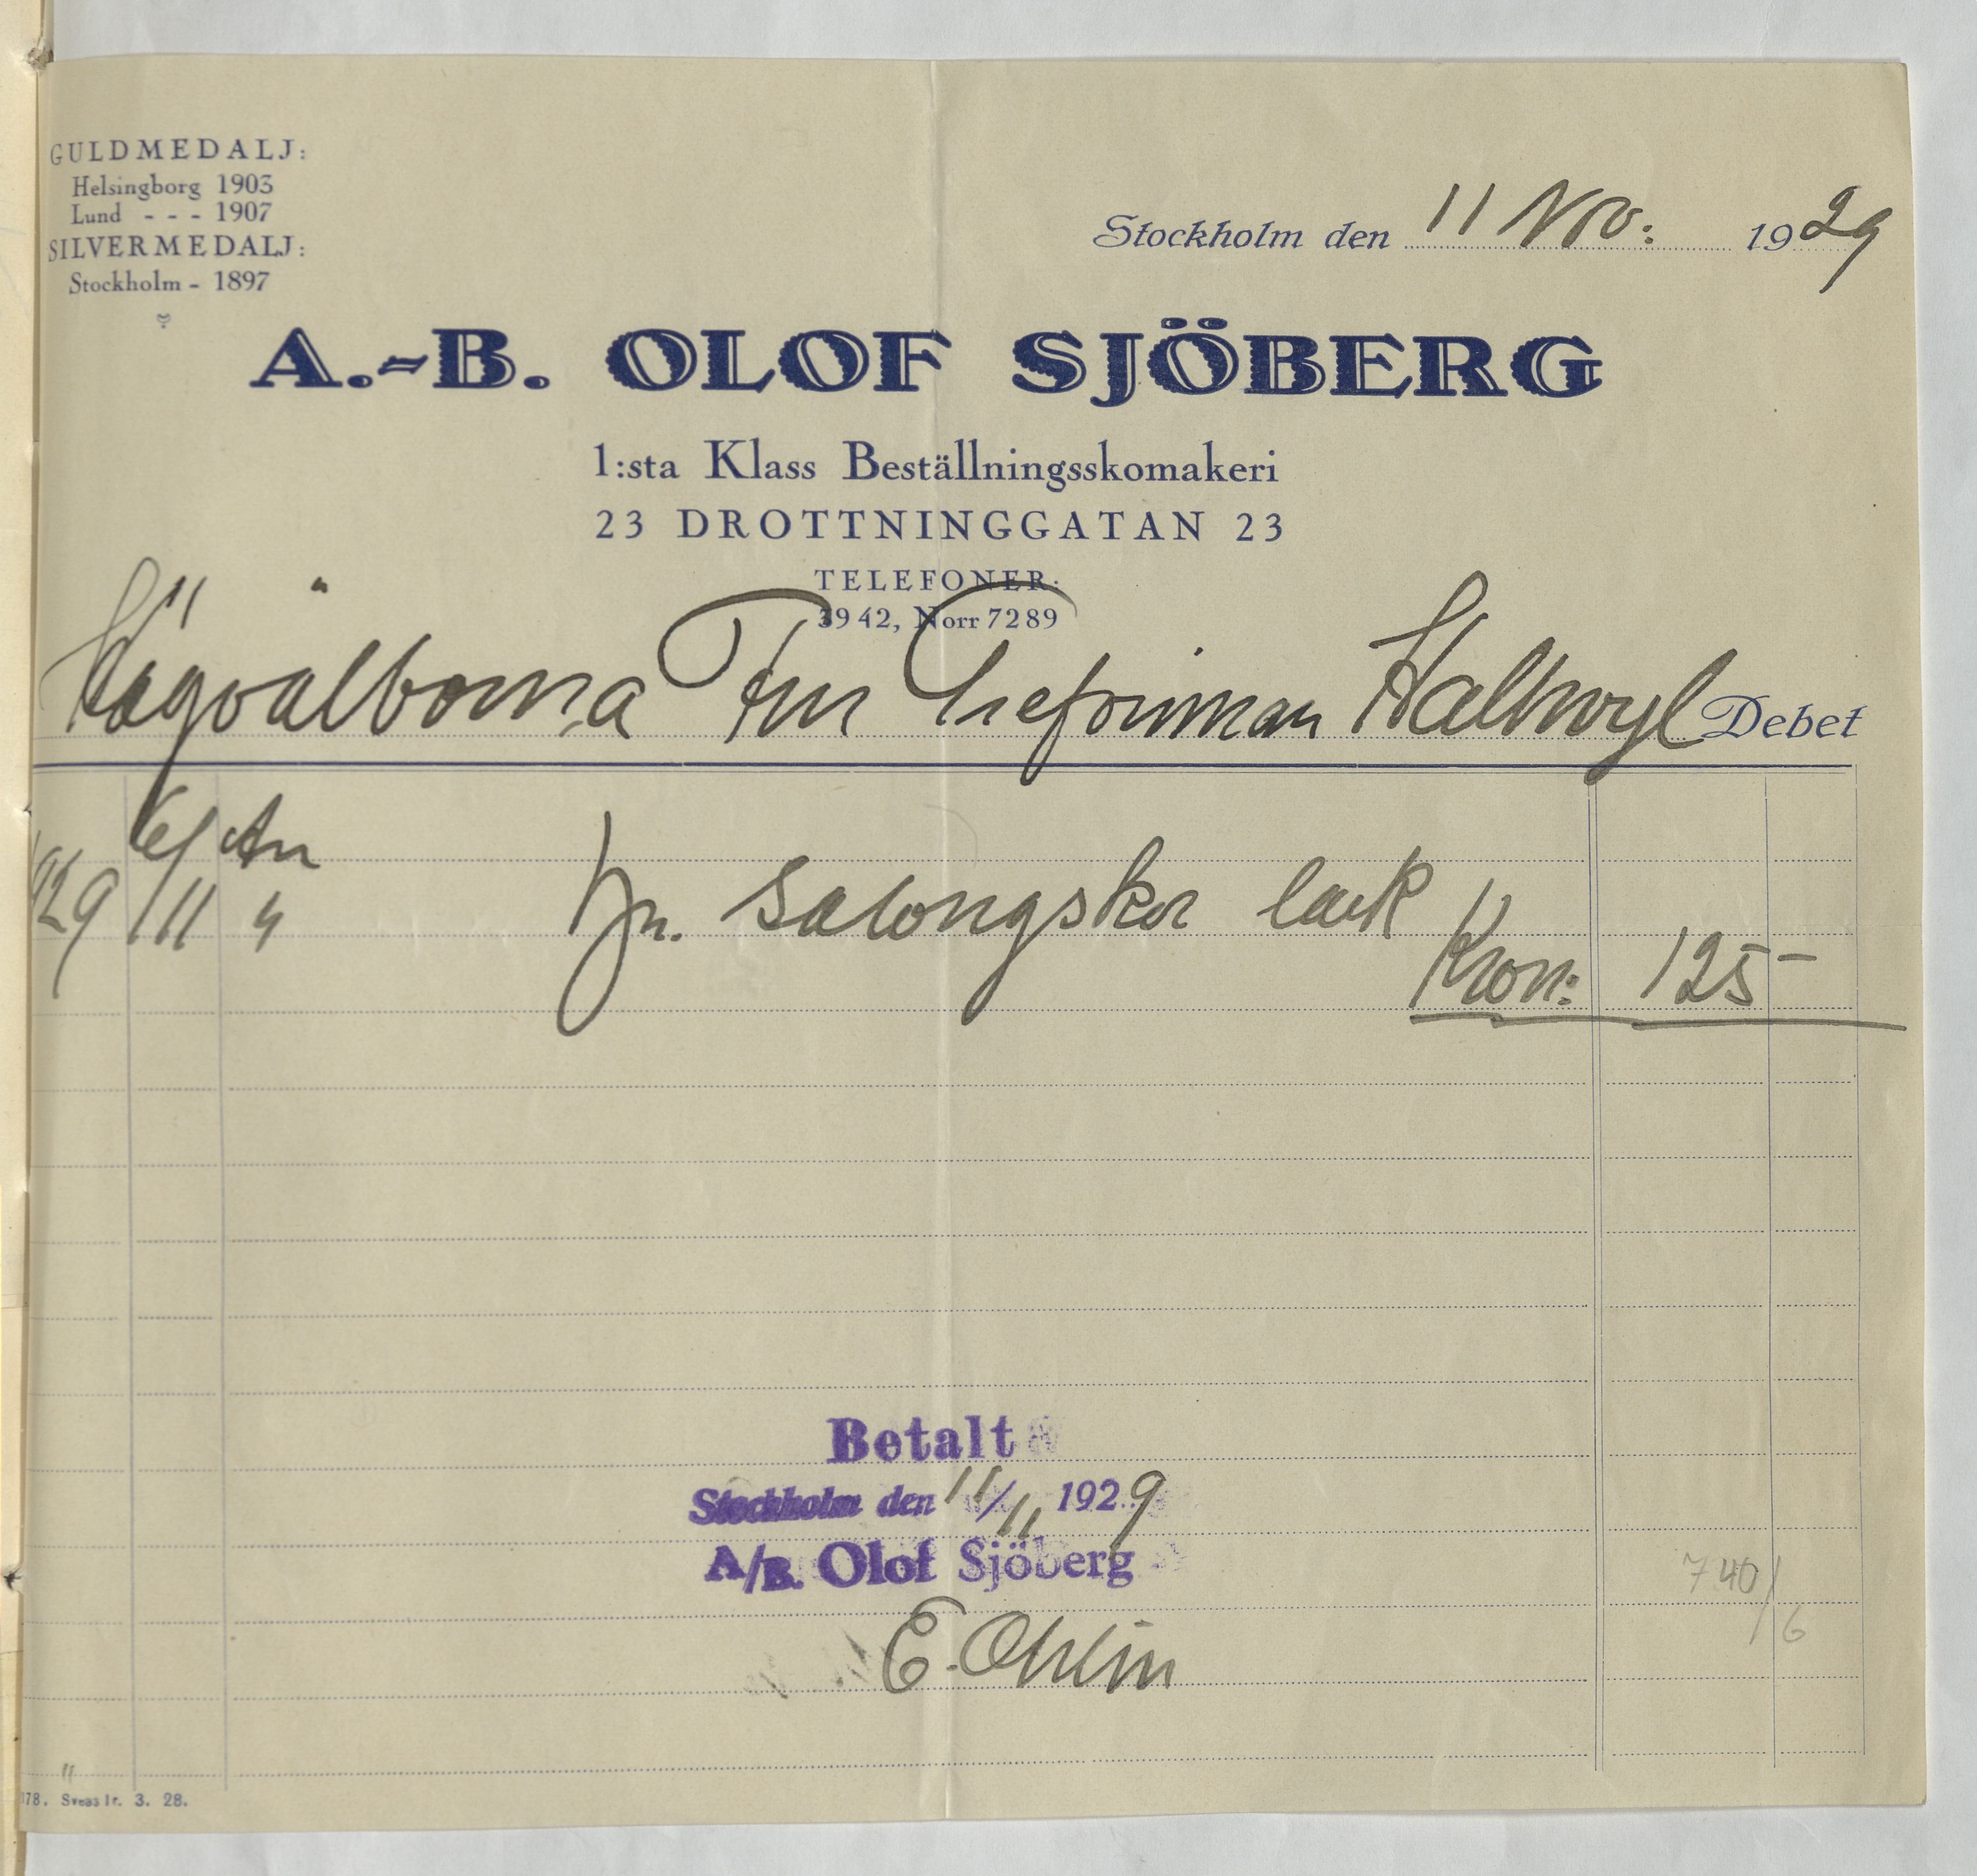 GULDMEDALJ:
Helsingborg 1903
Lund - - - 1907
SILVERMEDALJ:
Stockholm - 1897
Stockholm den 11 Nov: 1929
A.-B. OLOF SJÖBERG
1:sta Klass Beställningsskomakeri
23 DROTTNINGGATAN 23
TELEFONER:
3942, Norr 7289
Högvälborna Fru Grefvinnan Hallwyl Debet
1929 6/11 An
" pr. Salongskor lack
Kron: 125 -
Betalt
Stockholm den 11/11 1929
A/B. Olof Sjöberg
E. Ohlin
740/6
178. Sveas lr. 3. 28.